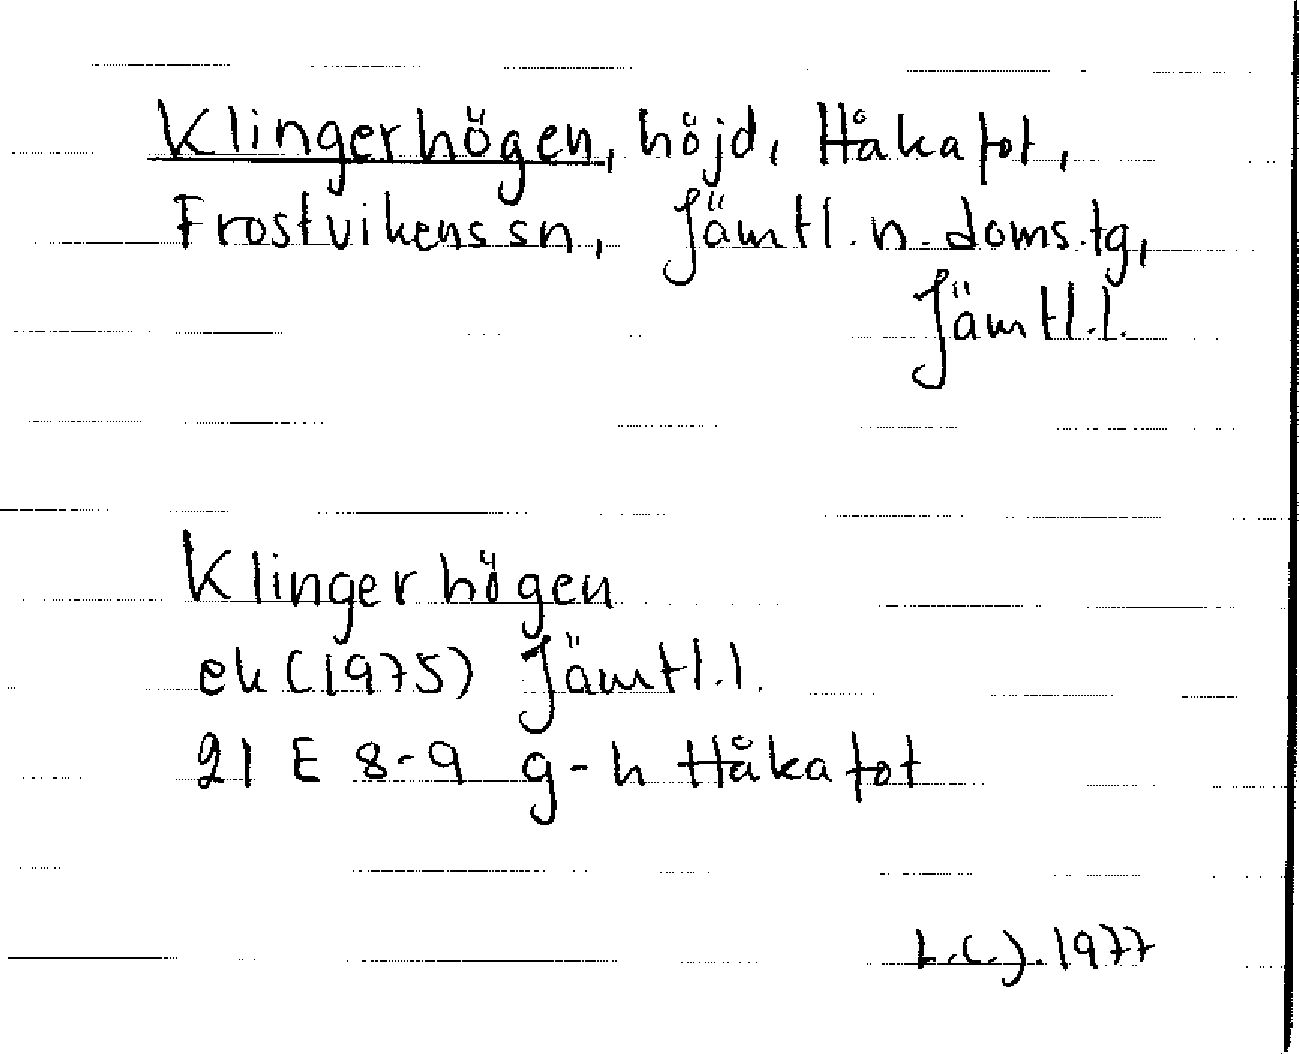 Klingerhögen, höjd, Håkafot,
Frostvikens sn, Jämtl. n. doms.tg,
Jämtl.l.
Klingerhögen
ek (1975) Jämtl.l.
21 E 8-9 g-h Håkafot
L.C.J. 1977